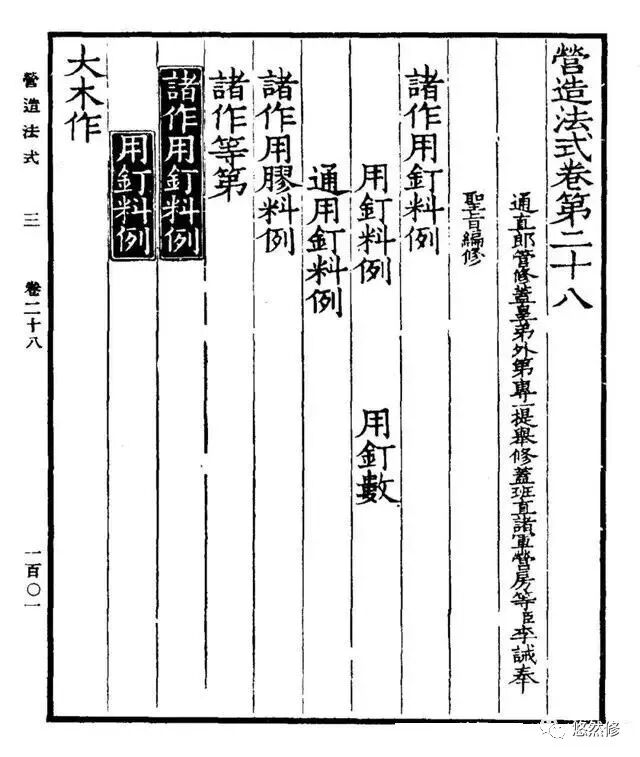 營造法式卷第二十八
通直郎管修蓋皇弟外第專一提舉修蓋班直諸軍營房等臣李誡奉
聖旨編修
諸作用釘料例
用釘料例 用釘數
通用釘料例
諸作用膠料例
諸作等第
諸作用釘料例
用釘料例
大木作
營造法式 三 卷二十八 一百〇一
悠然修